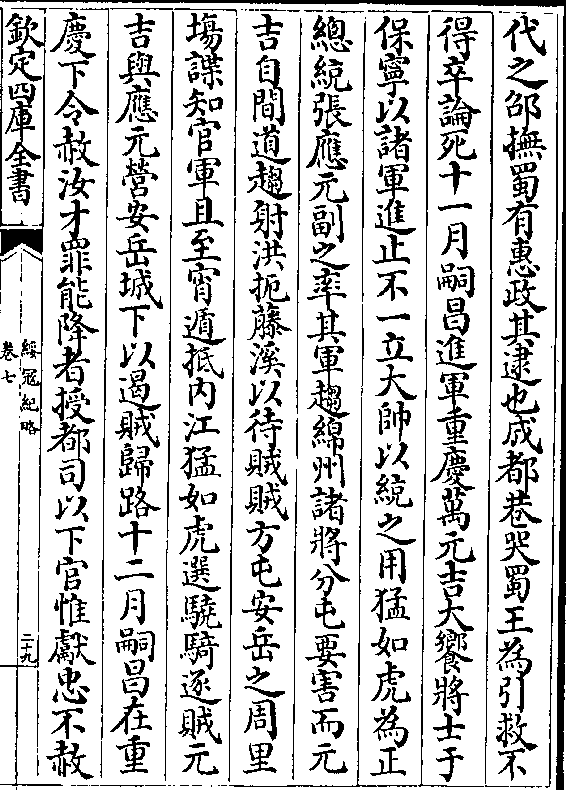 代之邵撫蜀有惠政其逮也成都巷哭蜀王為引救不
得卒論死十一月嗣昌進軍重慶萬元吉大饗將士于
保寧以諸軍進止不一立大帥以統之用猛如虎為正
總統張應元副之率其軍趨綿州諸將分屯要害而元
吉自間道趨射洪扼蓬溪以待賊賊方屯安岳之周里
場諜知官軍且至宵遁抵內江猛如虎選驍騎逐賊元
吉與應元營安岳城下以遏賊歸路十二月嗣昌在重
慶下令赦汝才罪能降者授都司以下官惟獻忠不赦
欽定四庫全書
綏寇紀略
卷七
二十九